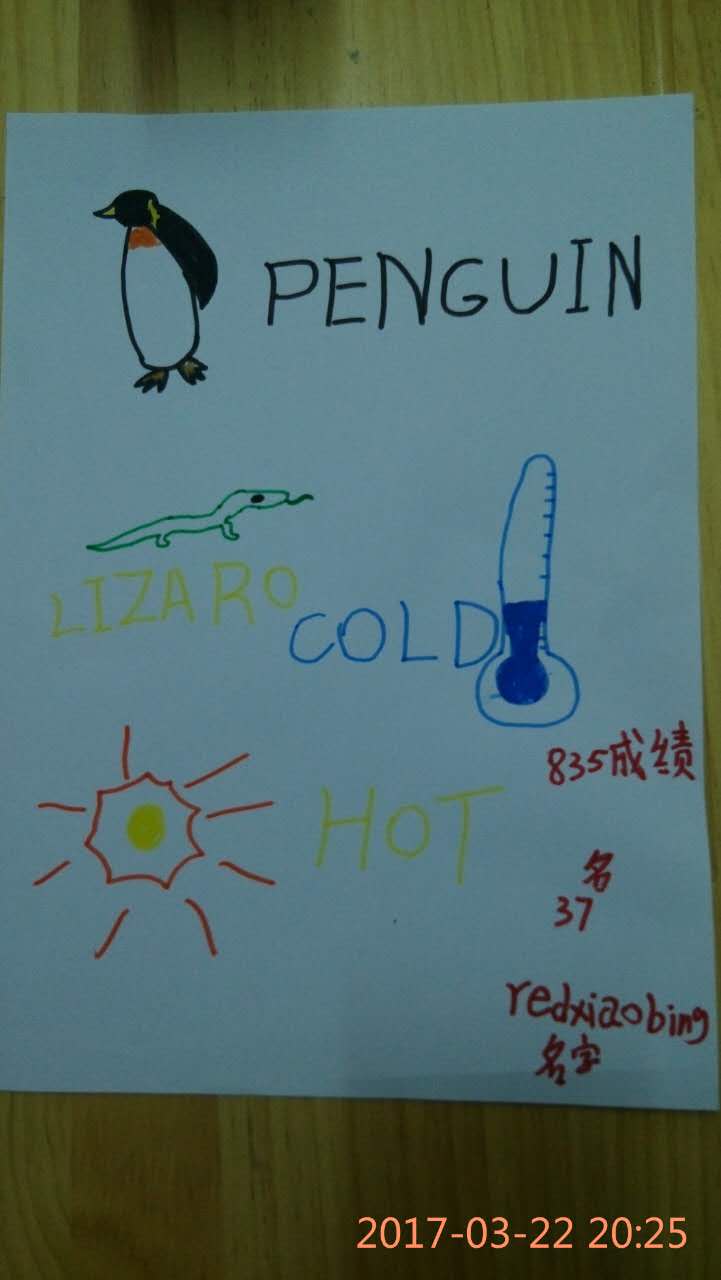 PENGUIN
LIZARO
COLD
HOT
835成绩
名
37
redxiaobing
名字
2017-03-22 20:25